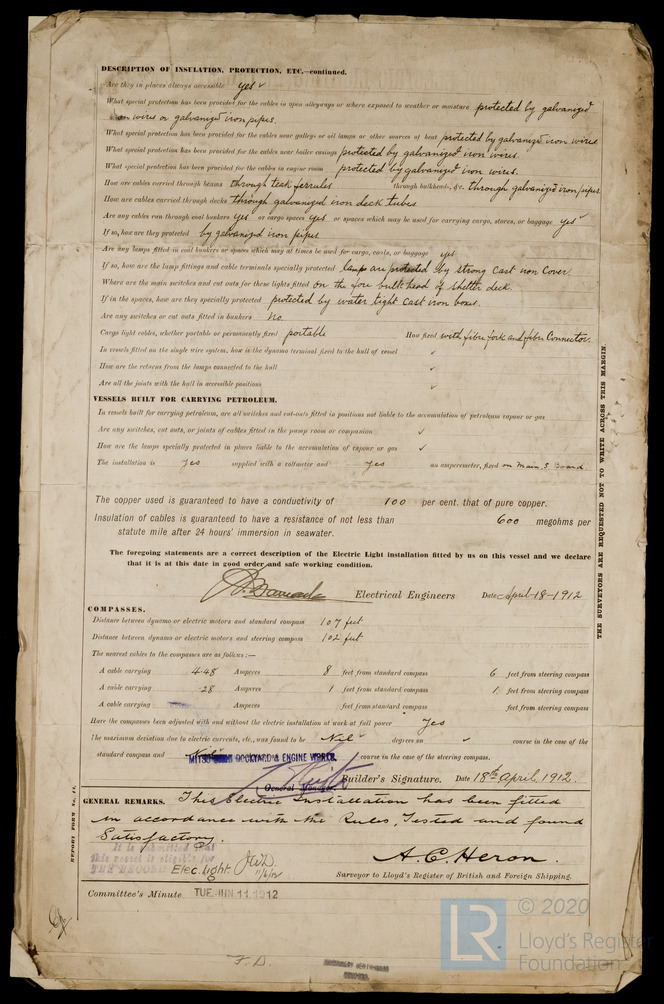 DESCRIPTION OF INSULATION, PROTECTION, ETC.—continued.
Are they in places always accessible yes ✓
What special protection has been provided for the cables in open alleyways or where exposed to weather or moisture protected by galvanized
iron wires or galvanized iron pipes.
What special protection has been provided for the cables near galleys or oil lamps or other sources of heat protected by galvanized iron wires
What special protection has been provided for the cables near boiler casings protected by galvanized iron wires.
What special protection has been provided for the cables in engine room protected by galvanized iron wires.
How are cables carried through beams through teak ferrules through bulkheads, &c. through galvanized iron pipes
How are cables carried through decks through galvanized iron deck tubes
Are any cables run through coal bunkers yes or cargo spaces yes or spaces which may be used for carrying cargo, stores, or baggage yes
If so, how are they protected by galvanized iron pipes
Are any lamps fitted in coal bunkers or spaces which may at times be used for cargo, coals, or baggage yes
If so, how are the lamp fittings and cable terminals specially protected lamps are protected by strong Cast iron Cover
Where are the main switches and cut outs for these lights fitted on the fore bulkhead of shelter deck.
If in the spaces, how are they specially protected protected by water tight Cast iron boxes.
Are any switches or cut outs fitted in bunkers No.
Cargo light cables, whether portable or permanently fixed portable How fixed with fibre fork and fibre Connectors
In vessels fitted on the single wire system, how is the dynamo terminal fixed to the hull of vessel ✓
How are the returns from the lamps connected to the hull ✓
Are all the joints with the hull in accessible positions ✓
VESSELS BUILT FOR CARRYING PETROLEUM.
In vessels built for carrying petroleum, are all switches and cut-outs fitted in positions not liable to the accumulation of petroleum vapour or gas
Are any switches, cut outs, or joints of cables fitted in the pump room or companion ✓
How are the lamps specially protected in places liable to the accumulation of vapour or gas ✓
The installation is yes supplied with a voltmeter and yes an amperemeter, fixed on Main S. Board
The copper used is guaranteed to have a conductivity of 100 per cent. that of pure copper.
Insulation of cables is guaranteed to have a resistance of not less than 600 megohms per
statute mile after 24 hours' immersion in seawater.
The foregoing statements are a correct description of the Electric Light installation fitted by us on this vessel and we declare
that it is at this date in good order and safe working condition.
Electrical Engineers Date April-18-1912
COMPASSES.
Distance between dynamo or electric motors and standard compass 107 feet
Distance between dynamo or electric motors and steering compass 102 feet
The nearest cables to the compasses are as follows:—
A cable carrying 4.48 Amperes 8 feet from standard compass 6 feet from steering compass
A cable carrying .28 Amperes 1 feet from standard compass 1 feet from steering compass
A cable carrying Amperes feet from standard compass feet from steering compass
Have the compasses been adjusted with and without the electric installation at work at full power Yes
The maximum deviation due to electric currents, etc., was found to be Nil degrees on ✓ course in the case of the
standard compass and Nil course in the case of the steering compass.
DOCKYARD & ENGINE WORKS.
General Manager. Builder's Signature. Date 18th April, 1912.
GENERAL REMARKS. This Electric Installation has been fitted
in accordance with the Rules, Tested and found
Satisfactory.
It is submitted that
this vessel is eligible for
THE RECORD Elec. light.
A. C. Heron.
Surveyor to Lloyd's Register of British and Foreign Shipping.
Committee's Minute TUE. JUN 11 1912
F.D.
REPORT FORM No. 11.
THE SURVEYORS ARE REQUESTED NOT TO WRITE ACROSS THIS MARGIN.
LR
© 2020
Lloyd's Register
Foundation